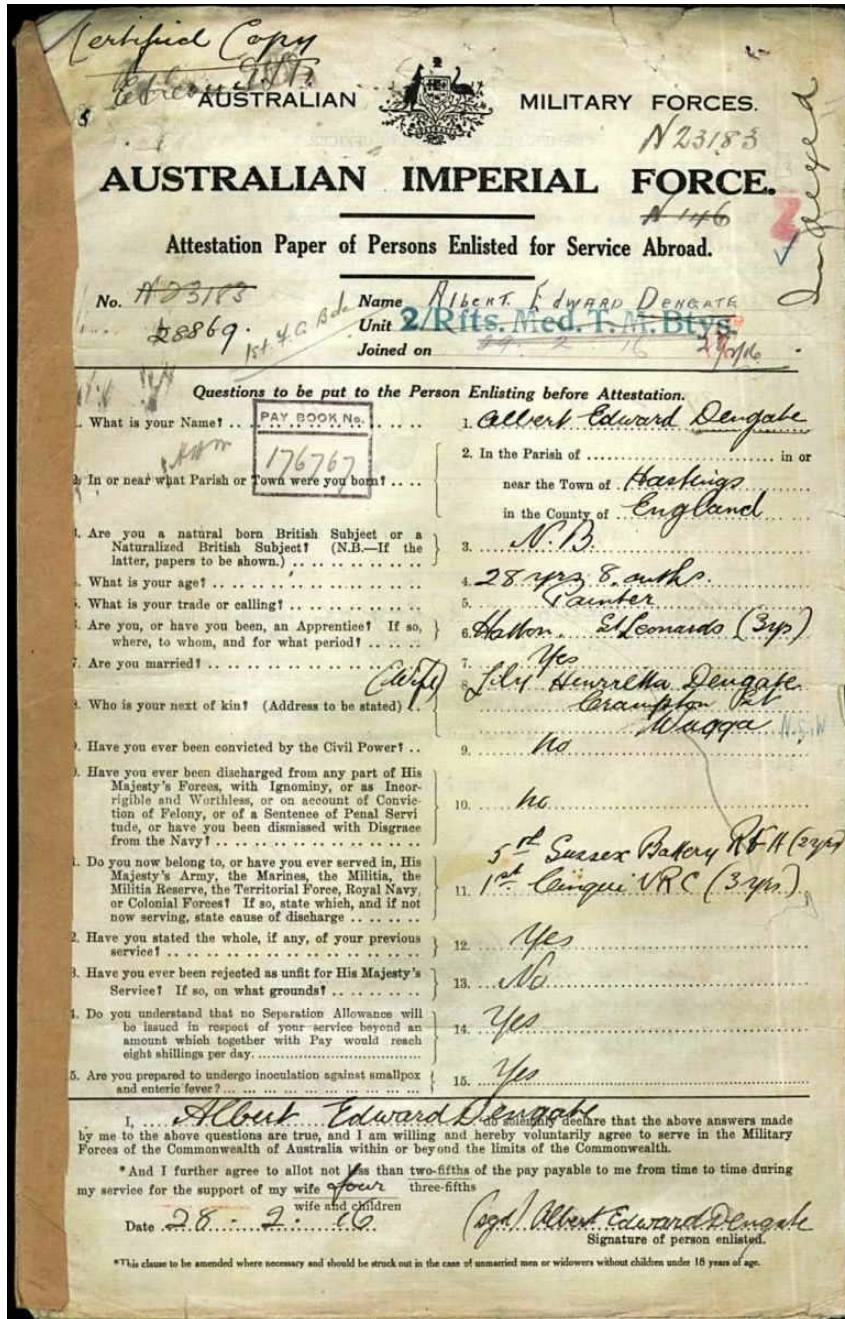 Certified Copy
AUSTRALIAN MILITARY FORCES.
N23183
Indexed
AUSTRALIAN IMPERIAL FORCE.
N 146
Attestation Paper of Persons Enlisted for Service Abroad.
No. N23183 Name Albert Edward Dengate
28869. 1st. F.A. Bde Unit 2/Rfts. Med. T. M. Btys.
Joined on 29. 2 16
Questions to be put to the Person Enlisting before Attestation.
1. What is your Name? 1. Albert Edward Dengate
PAY BOOK No.
176767
2. In or near what Parish or Town were you born? 2. In the Parish of in or
near the Town of Hastings
in the County of England
3. Are you a natural born British Subject or a
Naturalized British Subject? (N.B.—If the
latter, papers to be shown.) 3. N.B.
4. What is your age? 4. 28 yrs 8. mths.
5. What is your trade or calling? 5. Painter
6. Are you, or have you been, an Apprentice? If so,
where, to whom, and for what period? 6. Hatton. St Leonards (3 yrs)
7. Are you married? 7. Yes
8. Who is your next of kin? (Address to be stated) (Wife) 8. Lily Henrretta Dengate
Crampton St
Wagga N.S.W
9. Have you ever been convicted by the Civil Power? 9. no
10. Have you ever been discharged from any part of His
Majesty's Forces, with Ignominy, or as Incor-
rigible and Worthless, or on account of Convic-
tion of Felony, or of a Sentence of Penal Servi
tude, or have you been dismissed with Disgrace
from the Navy? 10. no
11. Do you now belong to, or have you ever served in, His
Majesty's Army, the Marines, the Militia, the
Militia Reserve, the Territorial Force, Royal Navy,
or Colonial Forces? If so, state which, and if not
now serving, state cause of discharge 11. 5rd Sussex Battery R F A (2 yrs)
1st Cinqui V R C (3 yrs)
12. Have you stated the whole, if any, of your previous
service? 12. Yes
13. Have you ever been rejected as unfit for His Majesty's
Service? If so, on what grounds? 13. No
14. Do you understand that no Separation Allowance will
be issued in respect of your service beyond an
amount which together with Pay would reach
eight shillings per day. 14. Yes
15. Are you prepared to undergo inoculation against smallpox
and enteric fever? 15. Yes
I, Albert Edward Dengate do solemnly declare that the above answers made
by me to the above questions are true, and I am willing and hereby voluntarily agree to serve in the Military
Forces of the Commonwealth of Australia within or beyond the limits of the Commonwealth.
*And I further agree to allot not less than two-fifths of the pay payable to me from time to time during
three-fifths
my service for the support of my wife
wife and children
Date 28 - 2 - 16 (sgd) Albert Edward Dengate
Signature of person enlisted.
*This clause to be amended where necessary and should be struck out in the case of unmarried men or widowers without children under 16 years of age.